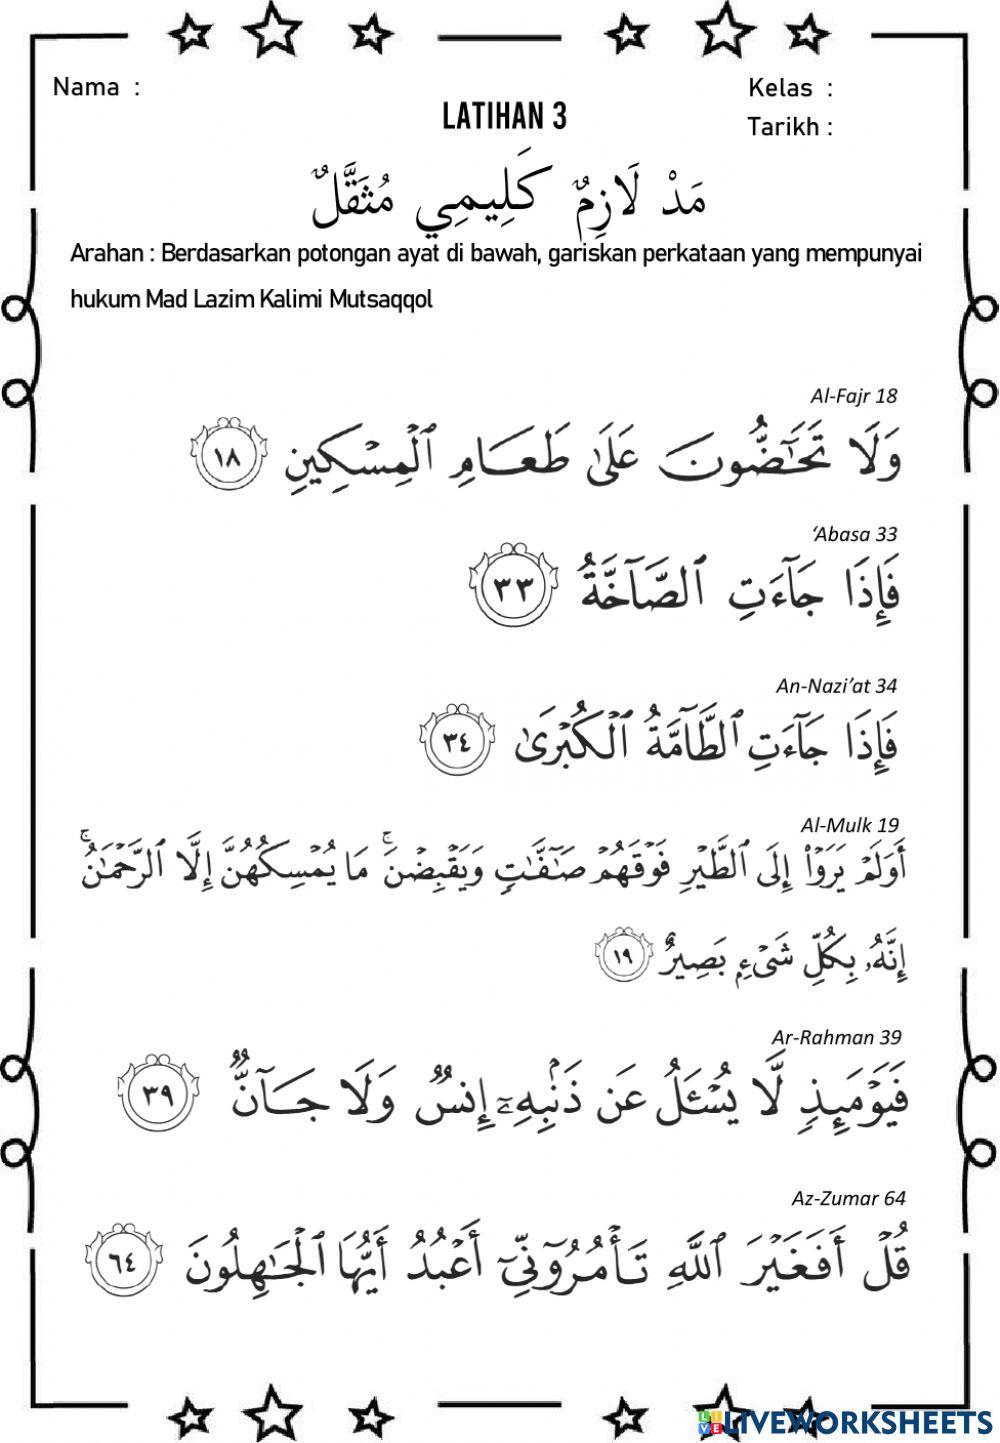 Nama :
Kelas :
LATIHAN 3
Tarikh :
مَدْ لَازِمٌ كَلِيمِي مُثَقَّلٌ
Arahan : Berdasarkan potongan ayat di bawah, gariskan perkataan yang mempunyai
hukum Mad Lazim Kalimi Mutsaqqol
Al-Fajr 18
وَلَا تَحَٰٓضُّونَ عَلَىٰ طَعَامِ ٱلۡمِسۡكِينِ ١٨
‘Abasa 33
فَإِذَا جَآءَتِ ٱلصَّآخَّةُ ٣٣
An-Nazi’at 34
فَإِذَا جَآءَتِ ٱلطَّآمَّةُ ٱلۡكُبۡرَىٰ ٣٤
Al-Mulk 19
أَوَلَمۡ يَرَوۡاْ إِلَى ٱلطَّيۡرِ فَوۡقَهُمۡ صَٰٓفَّٰتٖ وَيَقۡبِضۡنَۚ مَا يُمۡسِكُهُنَّ إِلَّا ٱلرَّحۡمَٰنُۚ
إِنَّهُۥ بِكُلِّ شَيۡءِۭ بَصِيرٌ ١٩
Ar-Rahman 39
فَيَوۡمَئِذٖ لَّا يُسۡـَٔلُ عَن ذَنۢبِهِۦٓ إِنسٞ وَلَا جَآنّٞ ٣٩
Az-Zumar 64
قُلۡ أَفَغَيۡرَ ٱللَّهِ تَأۡمُرُوٓنِّيٓ أَعۡبُدُ أَيُّهَا ٱلۡجَٰهِلُونَ ٦٤
LIVE LIVEWORKSHEETS